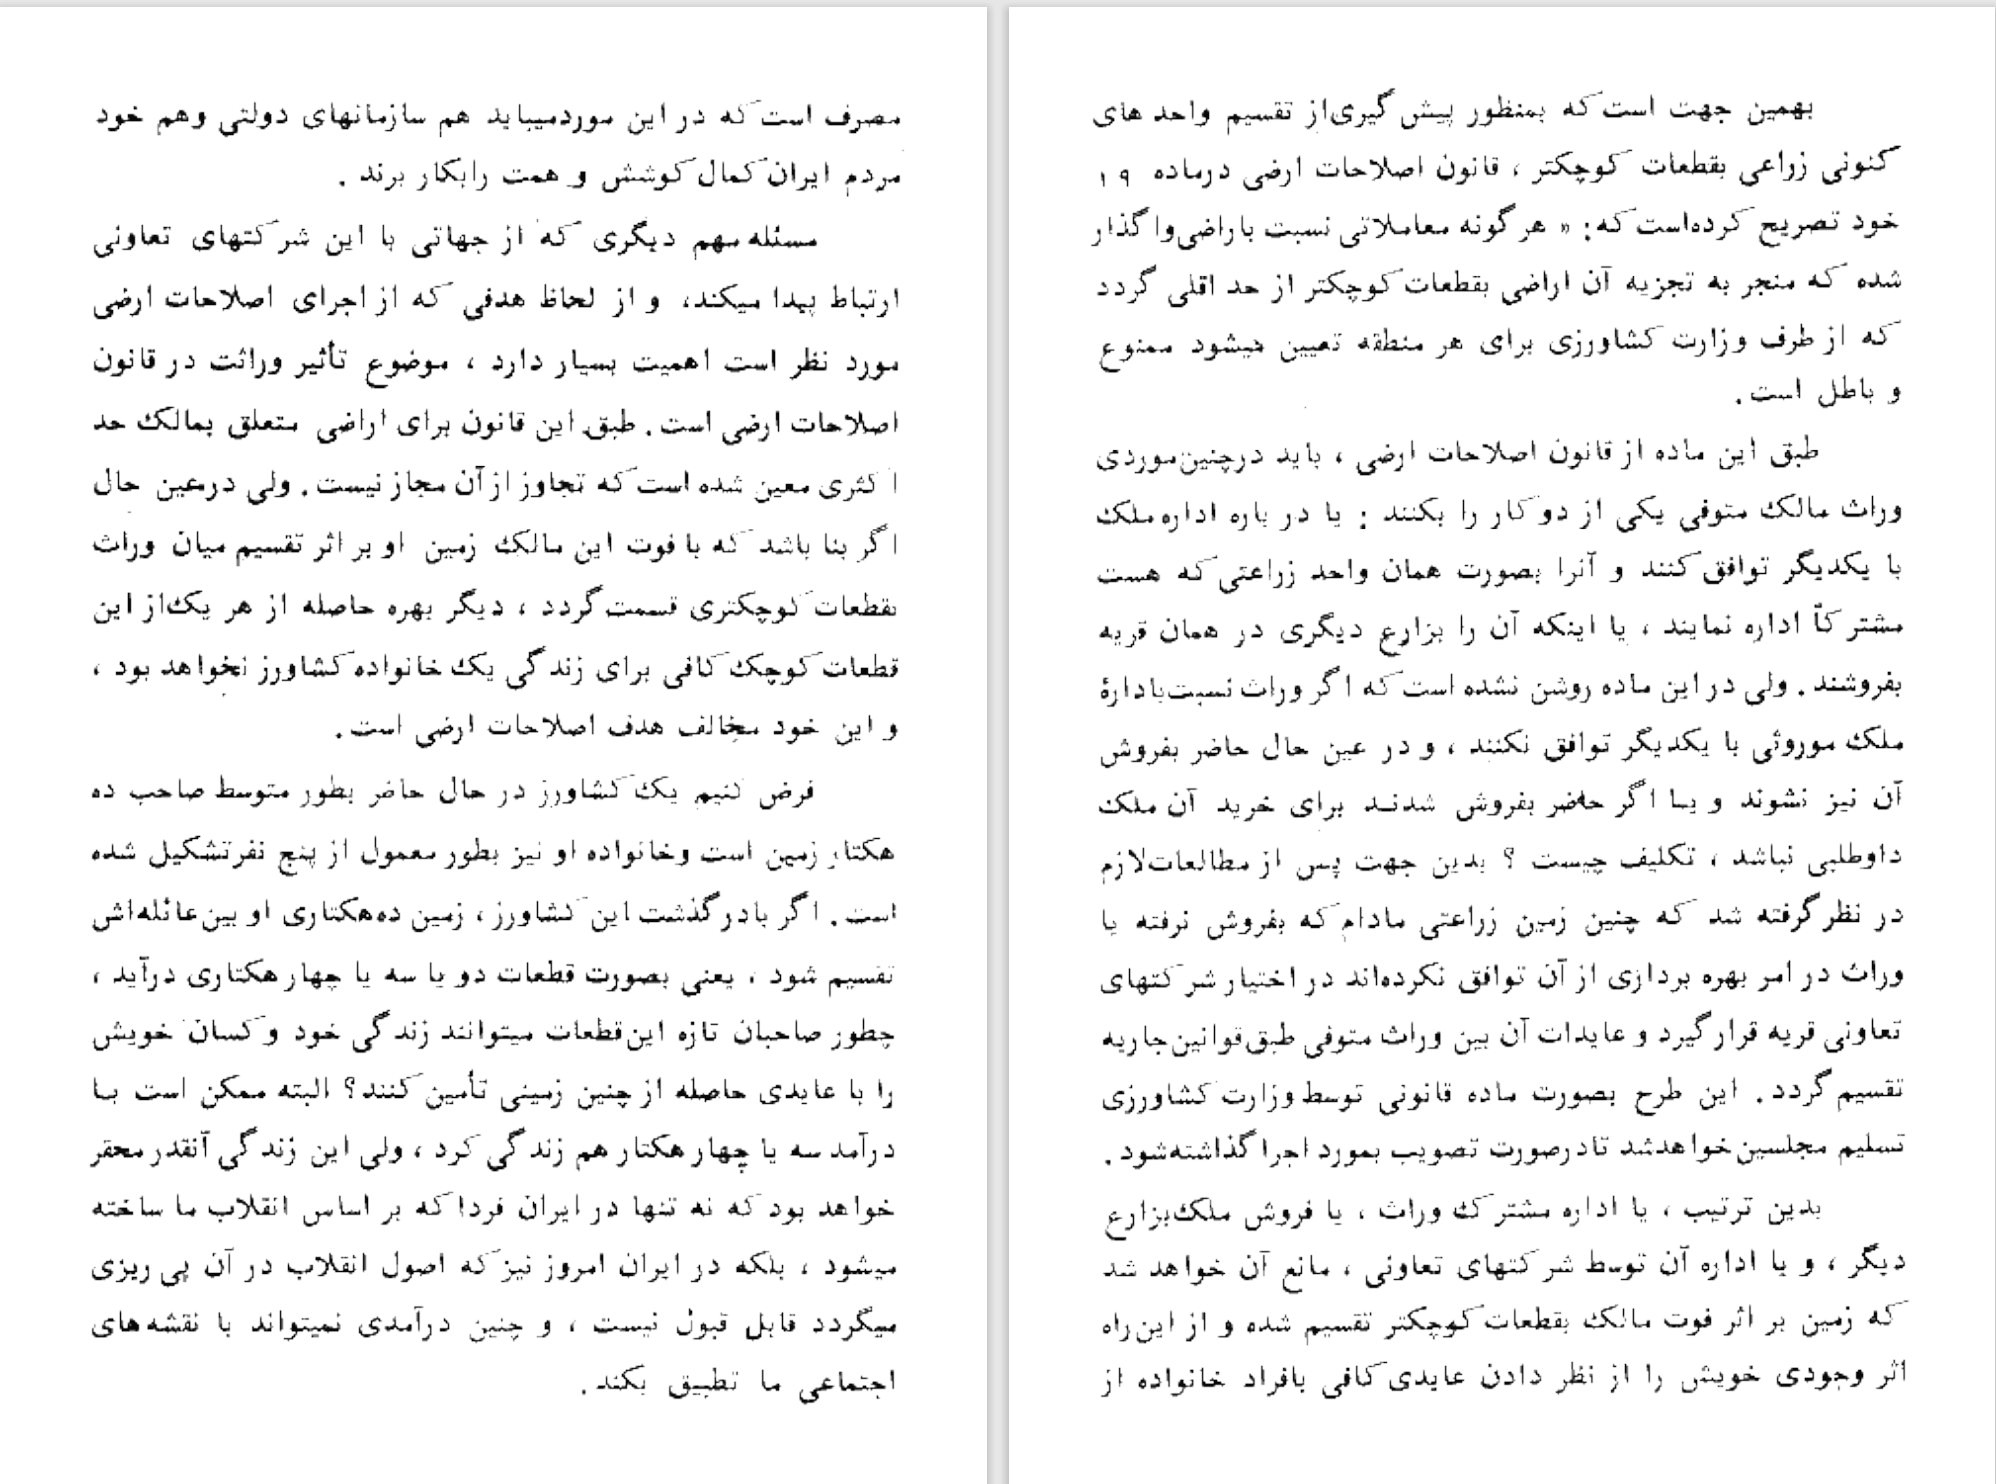 مصرف است که در این موردمیباید هم سازمانهای دولتی وهم خود
مردم ایران کمال کوشش و همت رابکار برند .
مسئله مهم دیگری که از جهاتی با این شرکتهای تعاونی
ارتباط پیدا میکند، و از لحاظ هدفی که از اجرای اصلاحات ارضی
مورد نظر است اهمیت بسیار دارد ، موضوع تأثیر وراثت در قانون
اصلاحات ارضی است . طبق این قانون برای اراضی متعلق بمالک حد
اکثری معین شده است که تجاوز از آن مجاز نیست . ولی درعین حال
اگر بنا باشد که با فوت این مالک زمین او بر اثر تقسیم میان وراث
بقطعات کوچکتری قسمت گردد ، دیگر بهره حاصله از هر یک از این
قطعات کوچک کافی برای زندگی یک خانواده کشاورز نخواهد بود ،
و این خود مخالف هدف اصلاحات ارضی است .
فرض کنیم یک کشاورز در حال حاضر بطور متوسط صاحب ده
هکتار زمین است وخانواده او نیز بطور معمول از پنج نفرتشکیل شده
است . اگر بادرگذشت این کشاورز ، زمین ده‌هکتاری او بین عائله‌اش
تقسیم شود ، یعنی بصورت قطعات دو یا سه یا چهار هکتاری درآید ،
چطور صاحبان تازه این قطعات میتوانند زندگی خود و کسان خویش
را با عایدی حاصله از چنین زمینی تأمین کنند؟ البته ممکن است بـا
درآمد سه یا چهار هکتار هم زندگی کرد ، ولی این زندگی آنقدر محقر
خواهد بود که نه تنها در ایران فردا که بر اساس انقلاب ما ساخته
میشود ، بلکه در ایران امروز نیز که اصول انقلاب در آن پی ریزی
میگردد قابل قبول نیست ، و چنین درآمدی نمیتواند با نقشه های
اجتماعی ما تطبیق بکند .
بهمین جهت است که بمنظور پیش گیری از تقسیم واحد های
کنونی زراعی بقطعات کوچکتر ، قانون اصلاحات ارضی درماده ۱۹
خود تصریح کرده‌است که : « هرگونه معاملاتی نسبت باراضی واگذار
شده که منجر به تجزیه آن اراضی بقطعات کوچکتر از حد اقلی گردد
که از طرف وزارت کشاورزی برای هر منطقه تعیین میشود ممنوع
و باطل است .
طبق این ماده از قانون اصلاحات ارضی ، باید درچنین‌موردی
وراث مالک متوفی یکی از دو کار را بکنند : یا در باره اداره ملک
با یکدیگر توافق کنند و آنرا بصورت همان واحد زراعتی که هست
مشترکاً اداره نمایند ، یا اینکه آن را بزارع دیگری در همان قریه
بفروشند . ولی در این ماده روشن نشده است که اگر وراث نسبت بادارۀ
ملک موروثی با یکدیگر توافق نکنند ، و در عین حال حاضر بفروش
آن نیز نشوند و یـا اگر حاضر بفروش شدنـد برای خرید آن ملک
داوطلبی نباشد ، تکلیف چیست ؟ بدین جهت پس از مطالعات لازم
در نظر گرفته شد که چنین زمین زراعتی مادام که بفروش نرفته یا
وراث در امر بهره برداری از آن توافق نکرده‌اند در اختیار شرکتهای
تعاونی قریه قرار گیرد و عایدات آن بین وراث متوفی طبق‌قوانین‌جاریه
تقسیم گردد . این طرح بصورت ماده قانونی توسط وزارت کشاورزی
تسلیم مجلسین خواهدشد تادرصورت تصویب بمورد اجرا گذاشته‌شود .
بدین ترتیب ، یا اداره مشترک وراث ، یا فروش ملک‌بزارع
دیگر ، و یا اداره آن توسط شرکتهای تعاونی ، مانع آن خواهد شد
که زمین بر اثر فوت مالک بقطعات کوچکتر تقسیم شده و از این راه
اثر وجودی خویش را از نظر دادن عایدی کافی بافراد خانواده از